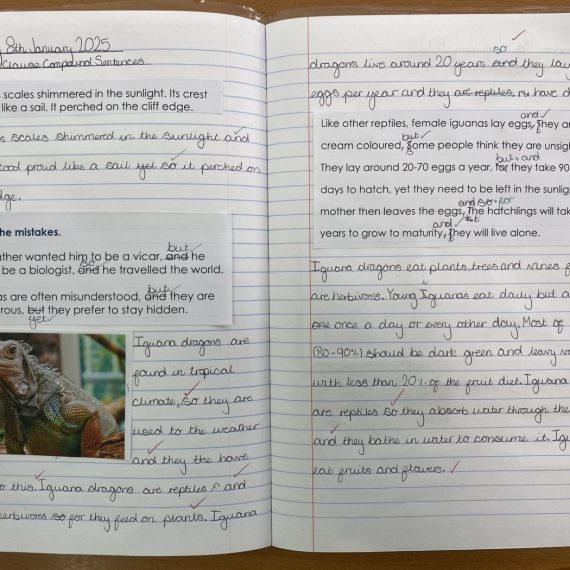 8th January 2025
Clause Compound Sentences
scales shimmered in the sunlight. Its crest
like a sail. It perched on the cliff edge.
s scales shimmered in the sunlight and
ood proud like a sail yet so it perched on
dge.
he mistakes.
but
ather wanted him to be a vicar, and he
so
be a biologist, and he travelled the world.
but
as are often misunderstood, and they are
rous, but they prefer to stay hidden.
yet
Iguana dragons are
found in tropical
climate, so they are
used to the weather
and they the have
o this. Iguana dragons are reptiles and
herbivores so for they feed on plants. Iguana
so
dragons live around 20 years and they lay
eggs per year and they are reptiles, have d
and
Like other reptiles, female iguanas lay eggs, They are
but
cream coloured, Some people think they are unsigh
but and
They lay around 20-70 eggs a year, for they take 90
days to hatch, yet they need to be left in the sunlig
and so for
mother then leaves the eggs, The hatchlings will tak
and yet
years to grow to maturity, They will live alone.
Iguana dragons eat plants, trees and vines f
are herbivores. Young Iguanas eat daily but a
one once a day or every other day. Most of
(80-90%) should be dark green and leavy
with less than 20% of the fruit diet. Iguana
are reptiles so they absorb water through the
and they bathe in water to consume it. Ig
eat fruits and flowers.